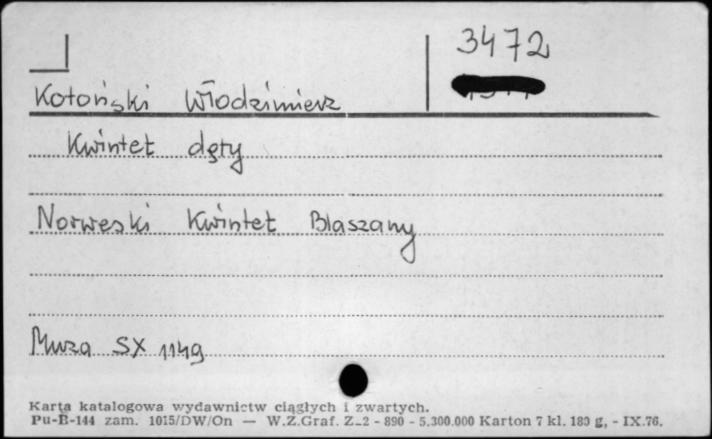 3472
Kotoński Włodzimierz
Kwintet dęty
Norweski Kwintet Blaszany
Muza SX 1149
Karta katalogowa wydawnictw ciągłych i zwartych.
Pu-B-144 zam. 1015/DW/On — W.Z.Graf. Z-2 - 890 - 5.300.000 Karton 7 kl. 180 g, - IX.76.